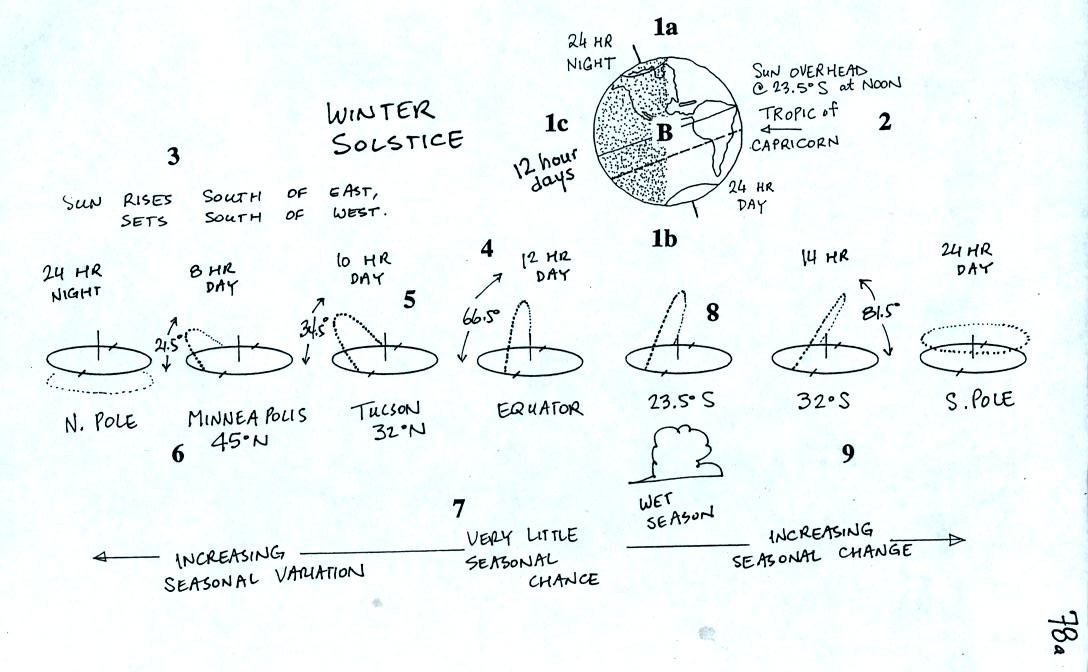 1a
24 HR
NIGHT
SUN OVERHEAD
@ 23.5° S at NOON
TROPIC of
CAPRICORN
2
1c
B
12 hour
days
24 HR
DAY
1b
WINTER
SOLSTICE
3
SUN RISES SOUTH OF EAST,
SETS SOUTH OF WEST.
24 HR
NIGHT
8 HR
DAY
10 HR
DAY
4
12 HR
DAY
14 HR
24 HR
DAY
21.5°
34.5°
5
66.5°
8
81.5°
N. POLE
MINNEAPOLIS
45°N
TUCSON
32°N
EQUATOR
23.5° S
32° S
S. POLE
6
9
WET
SEASON
7
INCREASING
SEASONAL VARIATION
VERY LITTLE
SEASONAL
CHANCE
INCREASING
SEASONAL CHANGE
78a